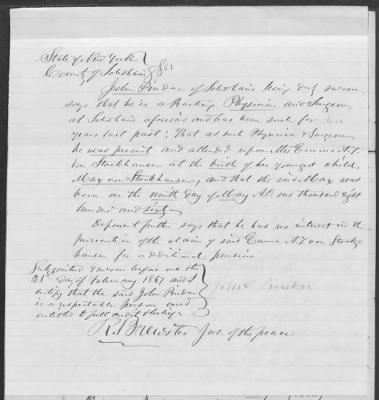 State of New York }
County of Schoharie } SS:
John Pindar of Schoharie being duly sworn
says that he is a Practicing Physician and Surgeon
at Schoharie aforesaid and has been such for ten
years last past; That as such Physician & Surgeon
he was present and attended upon Mrs Emma A. I.
Von Stockhausen at the birth of her youngest child,
Max von Stockhausen, and that the said Max was
born on the ninth day of May AD. one thousand eight
hundred and sixty
Deponent further says that he has no interest in the
prosecution of the claim of said Emma A. I. von Stock-
hausen for additional pension
Subscribed & sworn before me the
21st day of February 1867 and I
certify that the said John Pindar
is a respectable person and
entitled to full credit & belief
John Pindar
R. Brewster Jus. of the peace